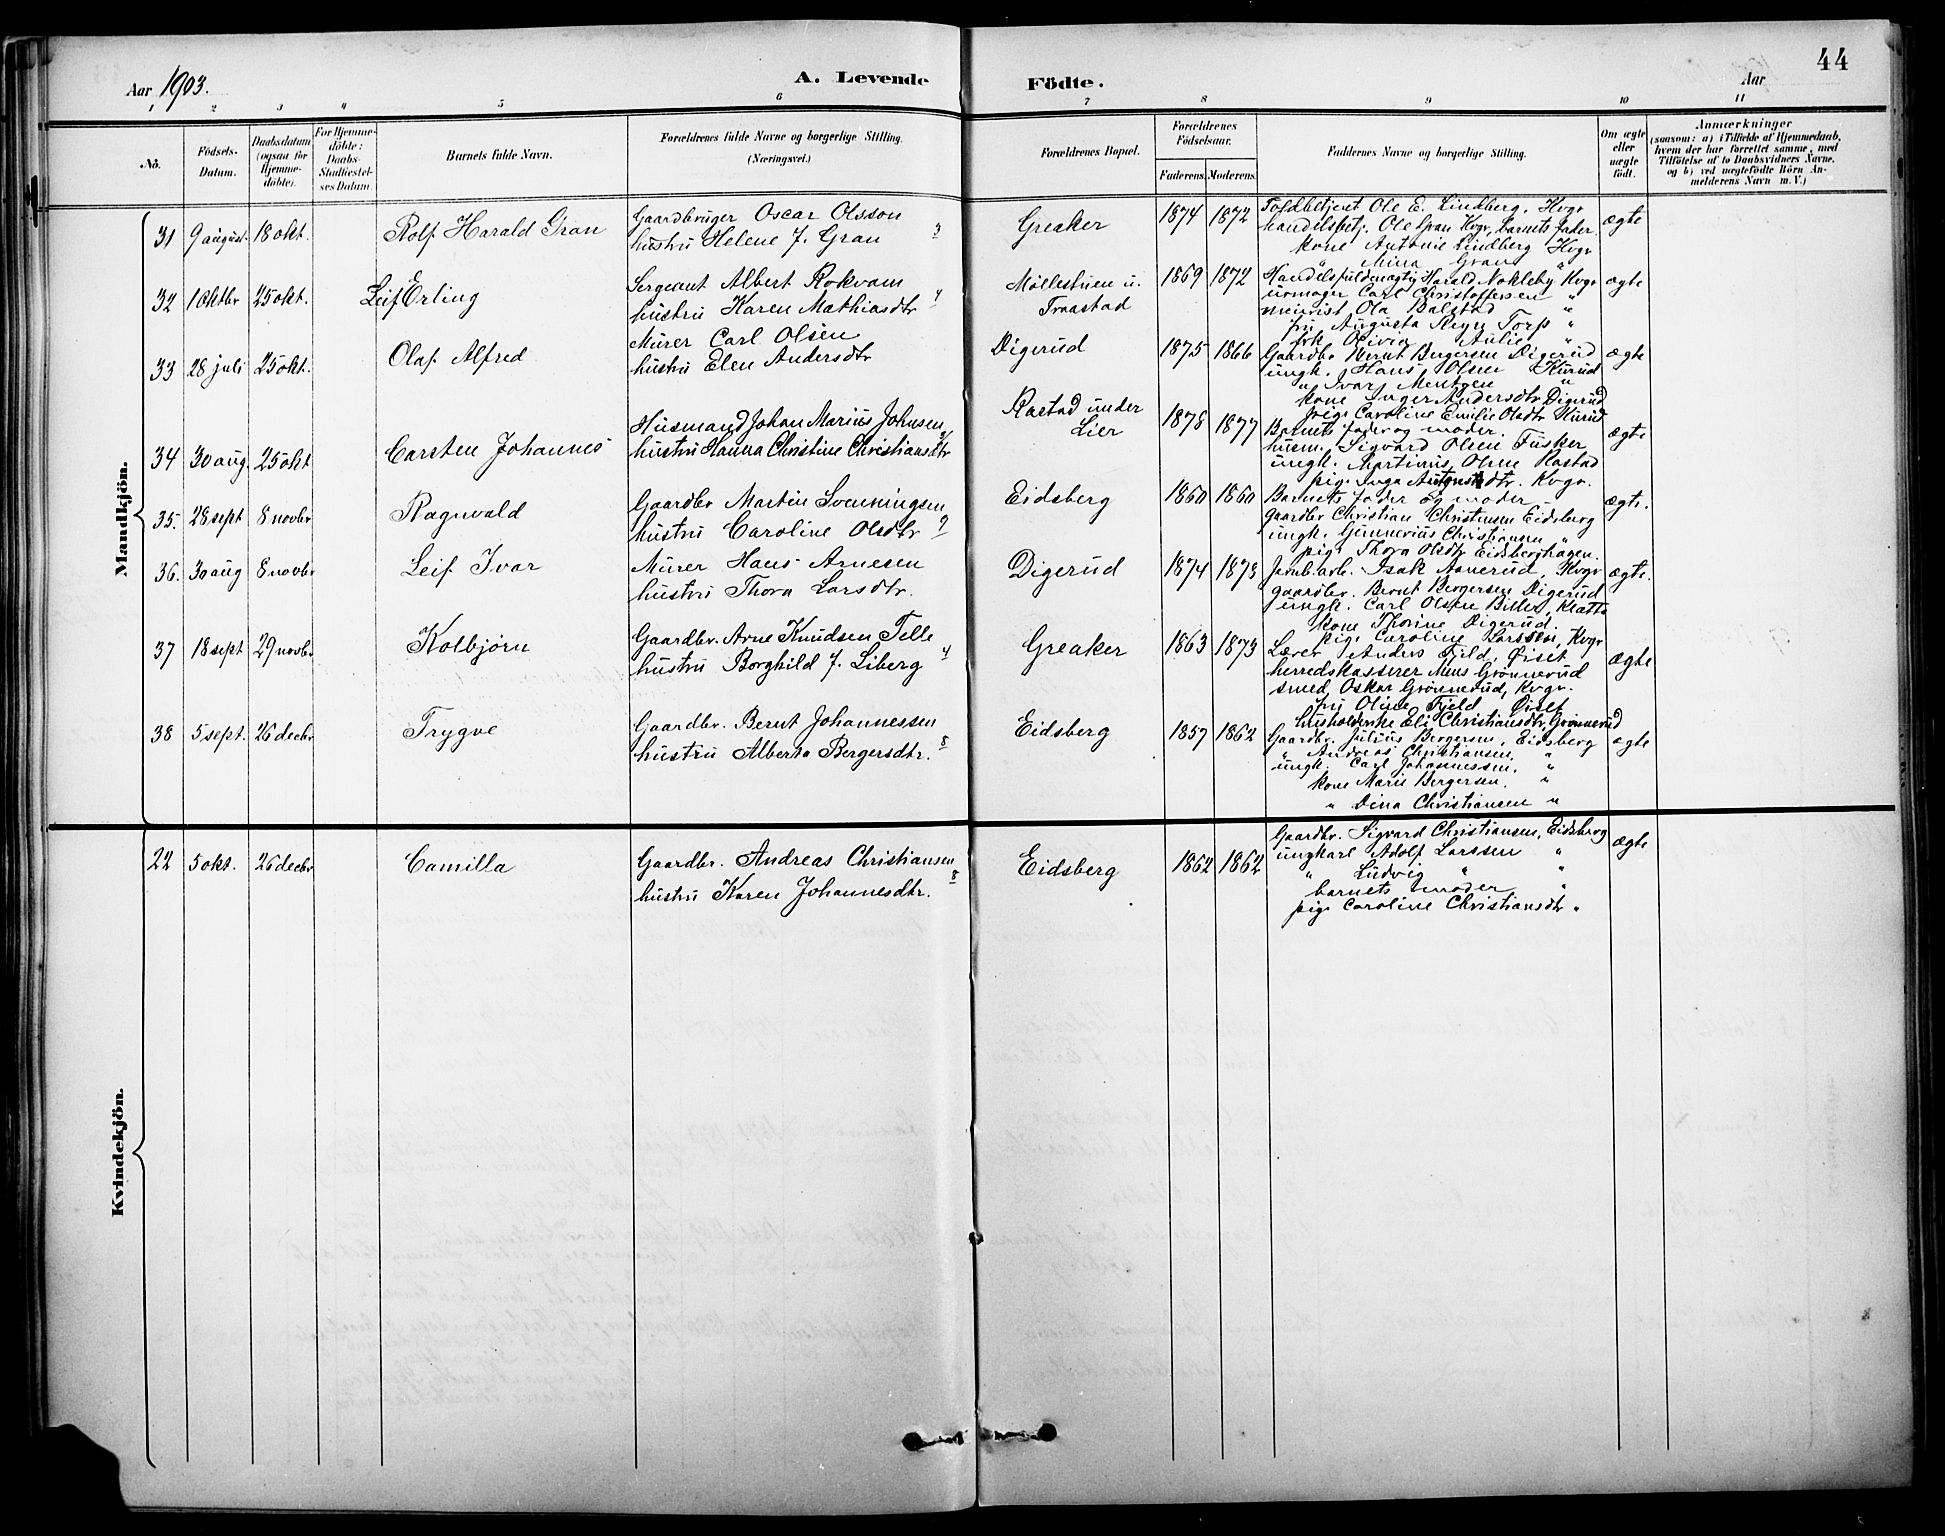 44
Aar 1903.
A. Levende Födte.
Aar
1 2 3 4 5 6 7 8 9 10 11
No.
Födsels-Datum.
Daabsdatum (ogsaa for Hjemme-döbte).
For Hjemme-döbte: Daabs-Stadfæstel-ses Datum.
Barnets fulde Navn.
Forældrenes fulde Navne og borgerlige Stilling.
(Næringsvei.)
Forældrenes Bopæl.
Forældrenes Födselsaar.
Faderens. Moderens.
Faddernes Navne og borgerlige Stilling.
Om ægte eller uægte födt.
Anmærkninger
(saasom: a) i Tilfælde af Hjemmedaab, hvem der har forrettet samme, med Tilföielse af to Daabsvidners Navne, og b) ved uægtefödte Börn An-melderens Navn m. V.)
Mandkjön.
31 9 august 18 okt. Rolf Harald Gran
Gaardbruger Oscar Olsson
hustru Helene J. Gran 3
Greaker 1874 1872
Toldbetjent Ole E. Lindberg, Kvgr
handelsbetj. Ole Gran Kvgr, barnets fader
kone Antonie Lindberg Kvgr
" Mina Gran "
ægte
32 1 oktbr 25 okt. Leif Erling
Sergeant Albert Rokvam
hustru Karen Mathiasdtr 4
Möllestuen u.
Traastad
1869 1872
Handelsfuldmægtig Harald Nokleby Kvgr
urmager Carl Christoffersen "
meierist Ola Balstad "
fru Augusta Reyn Torp "
frk Olivia Aulie "
ægte
33 28 juli 25 okt. Olaf Alfred
Murer Carl Olsen
hustru Elen Andersdtr
Digerud 1875 1866
Gaardbr Bernt Bergersen Digerud
ungk. Hans Olsen Kurud
" Ivar Mentzen "
kone Inger Andersdtr Digerud
pige Caroline Emilie Olsdtr Kurud
ægte
34 30 aug. 25 okt Carsten Johannes
Husmand Johan Marius Johnsen
hustru Hanna Christine Christiansdtr
Rastad under
Lier
1878 1877
Barnets fader og moder
husm. Sigvard Olsen Fusker
ungk. Martinus Olsen Rastad
pige Inga Antonsdtr. Kvgr.
ægte
35. 28 sept 8 novbr Ragnvald
Gaardbr Martin Svenningsen
hustru Caroline Olsdtr 9
Eidsberg 1860 1860
Barnets fader og moder
gaardbr Christian Christensen Eidsberg
ungk. Gunnerius Christiansen "
pige Thora Olsdtr Eidsberghagen.
ægte.
36. 30 aug 8 novbr Leif Ivar
Murer Hans Arnesen
hustru Thora Larsdtr.
Digerud 1874 1878
Jernb.arb. Isak Aanerud, Kvgr
gaardbr. Bernt Bergersen Digerud
ungk. Carl Olsen
kone Thorine Digerud.
pige Caroline Larssen, Kvgr
ægte.
37 18 sept 29 novbr Kolbjörn
Gaardbr. Arne Knudsen Telle
hustru Borghild J. Liberg 4
Greaker 1863 1873
Lærer Anders Fjeld, Öiset
herredskasserer Mens Grönnerud
smed Oskar Grönnerud, Kvgr.
fru Oline Fjeld Öiset
husholderske Eli Christiansdtr Grönnerud
ægte
38 5 sept. 26 decbr Trygve
Gaardbr. Bernt Johannessen
hustru Alberta Bergersdtr. 8
Eidsberg 1857 1862
Gaardbr. Julius Bergersen, Eidsberg
" Andreas Christiansen, "
ungk. Carl Johannessen, "
kone Marie Bergersen. "
" Dina Christiansen "
ægte
Kvindekjön.
22 5 okt. 26 decbr Camilla
Gaardbr. Andreas Christiansen
hustru Karen Johannesdtr. 8
Eidsberg 1862 1862
Gaardbr. Sigvard Christiansen, Eidsberg
ungkarl Adolf Larssen "
" Ludvig " "
barnets moder "
pige Caroline Christiansdtr "
ægte